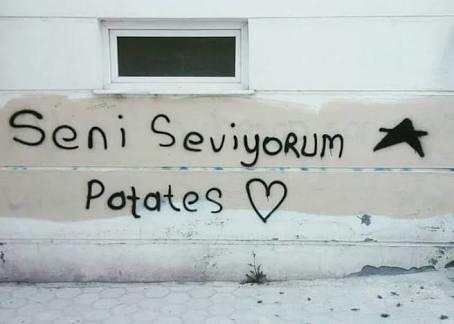 Seni Seviyorum
Patates